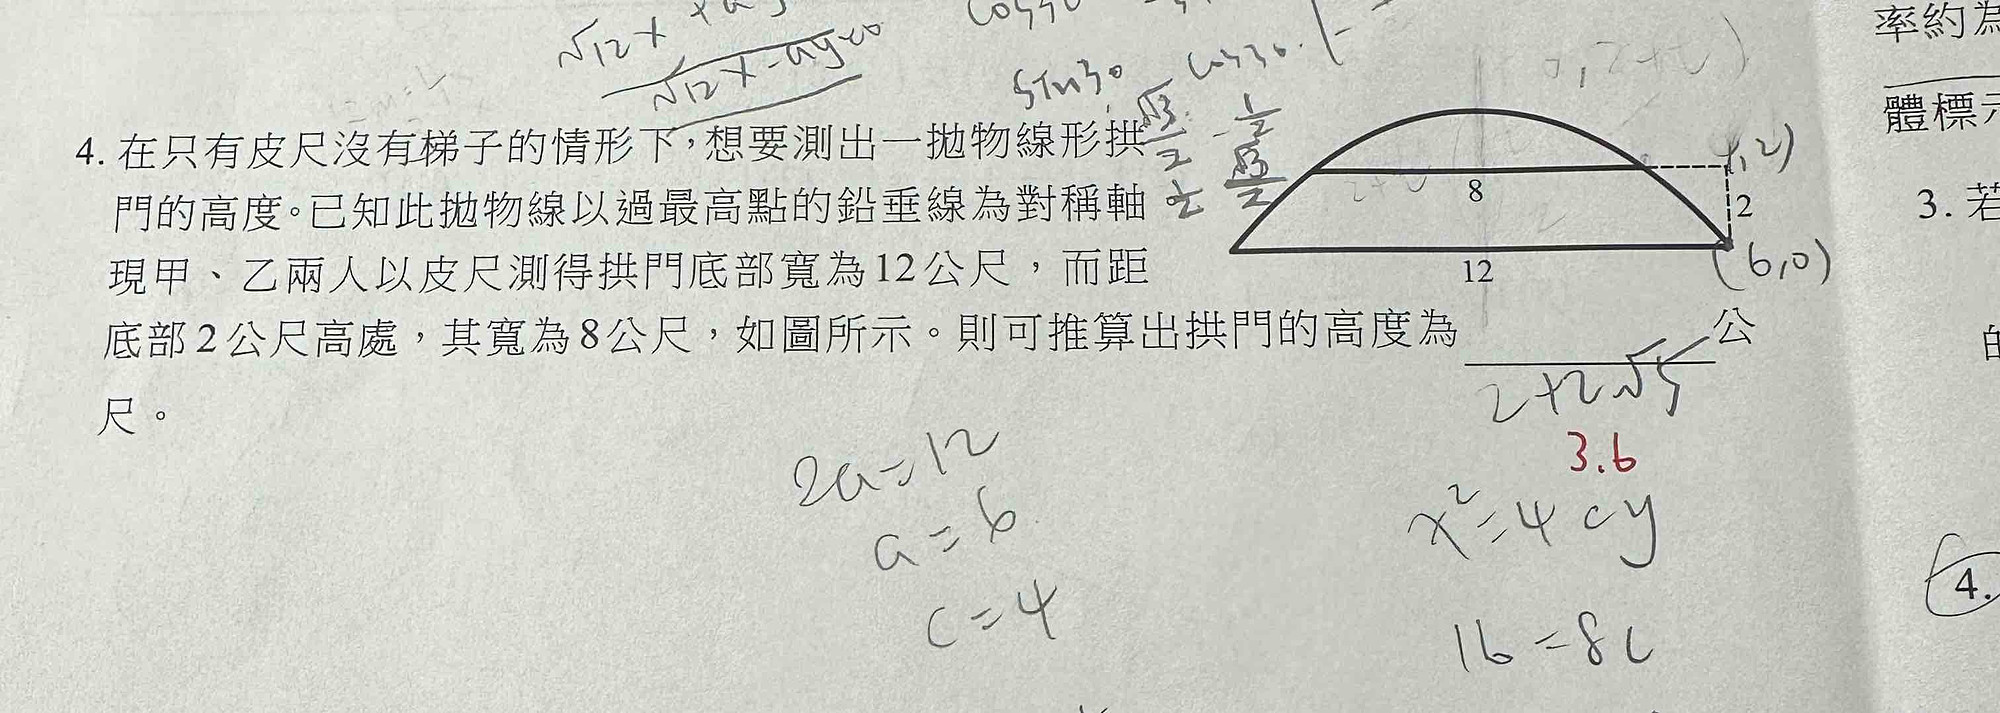 √12 x
√12 x - ay = 0
sin30
cos30
率約為
體標示
4. 在只有皮尺沒有梯子的情形下，想要測出一拋物線形拱
門的高度。已知此拋物線以過最高點的鉛垂線為對稱軸
現甲、乙兩人以皮尺測得拱門底部寬為12公尺，而距
底部2公尺高處，其寬為8公尺，如圖所示。則可推算出拱門的高度為
公
尺。
8
2
12
(6,0)
3. 若
的
2+2√5
3.6
2a=12
a=6
c=4
x²=4cy
16=8c
4.